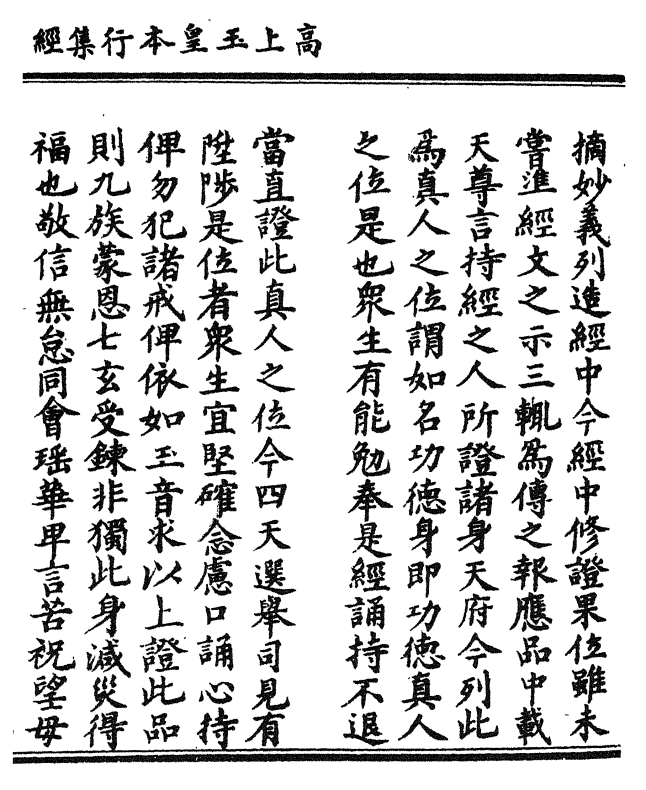 高上玉皇本行集經
摘妙義列造經中今經中修證果位雖未
嘗準經文之示三輒為傳之報應品中載
天尊言持經之人所證諸身天府今列此
為真人之位謂如名功德身即功德真人
之位是也衆生有能勉奉是經誦持不退
當直證此真人之位今四天選舉司見有
陞陟是位者衆生宜堅確念慮口誦心持
俾勿犯諸戒俾依如玉音求以上證此品
則九族蒙恩七玄受鍊非獨此身減災得
福也敬信無怠同會瑶華卑言苦祝望毋